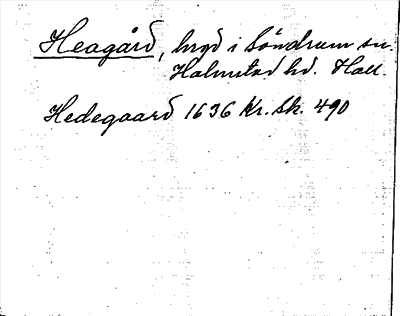 Heagård, bryd i Söndrum sn.
Halmstad hd. Hall.
Hedegaard 1636 Kr. Sk. 490